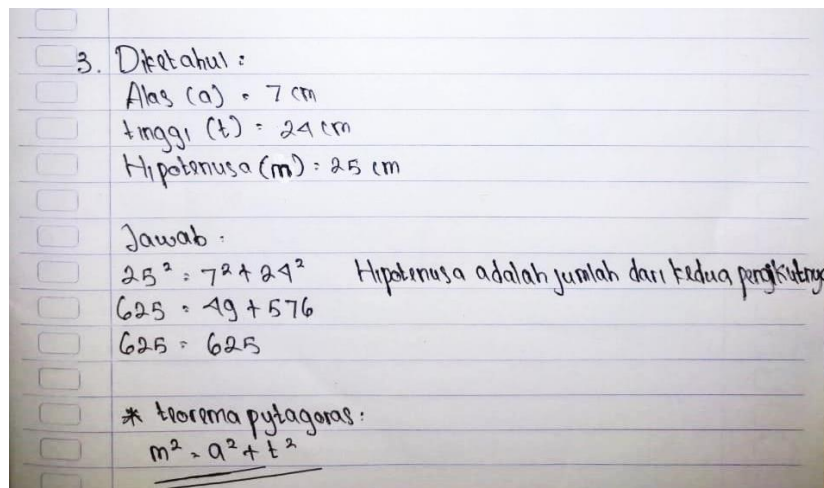 3. Diketahui :
Alas (a) = 7 cm
tinggi (t) = 24 cm
Hipotenusa (m) = 25 cm
Jawab :
25² = 7² + 24² Hipotenusa adalah jumlah dari kedua pengikutnya
625 = 49 + 576
625 = 625
* teorema pytagoras :
m² = a² + t²